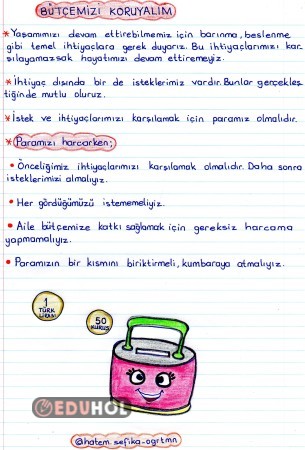 BÜTÇEMİZİ KORUYALIM
* Yaşamımızı devam ettirebilmemiz için barınma, beslenme
gibi temel ihtiyaçlara gerek duyarız. Bu ihtiyaçlarımızı kar_
şılayamazsak hayatımızı devam ettiremeyiz.
* İhtiyaç dışında bir de isteklerimiz vardır. Bunlar gerçekleş_
tiğinde mutlu oluruz.
* İstek ve ihtiyaçlarımızı karşılamak için paramız olmalıdır.
* Paramızı harcarken;
• Önceliğimiz ihtiyaçlarımızı karşılamak olmalıdır. Daha sonra
isteklerimizi almalıyız.
• Her gördüğümüzü istememeliyiz.
• Aile bütçemize katkı sağlamak için gereksiz harcama
yapmamalıyız.
• Paramızın bir kısmını biriktirmeli, kumbaraya atmalıyız.
1
TÜRK
LİRASI
50
KURUŞ
EDUHOL
@hatem_sefika_ogrtmn